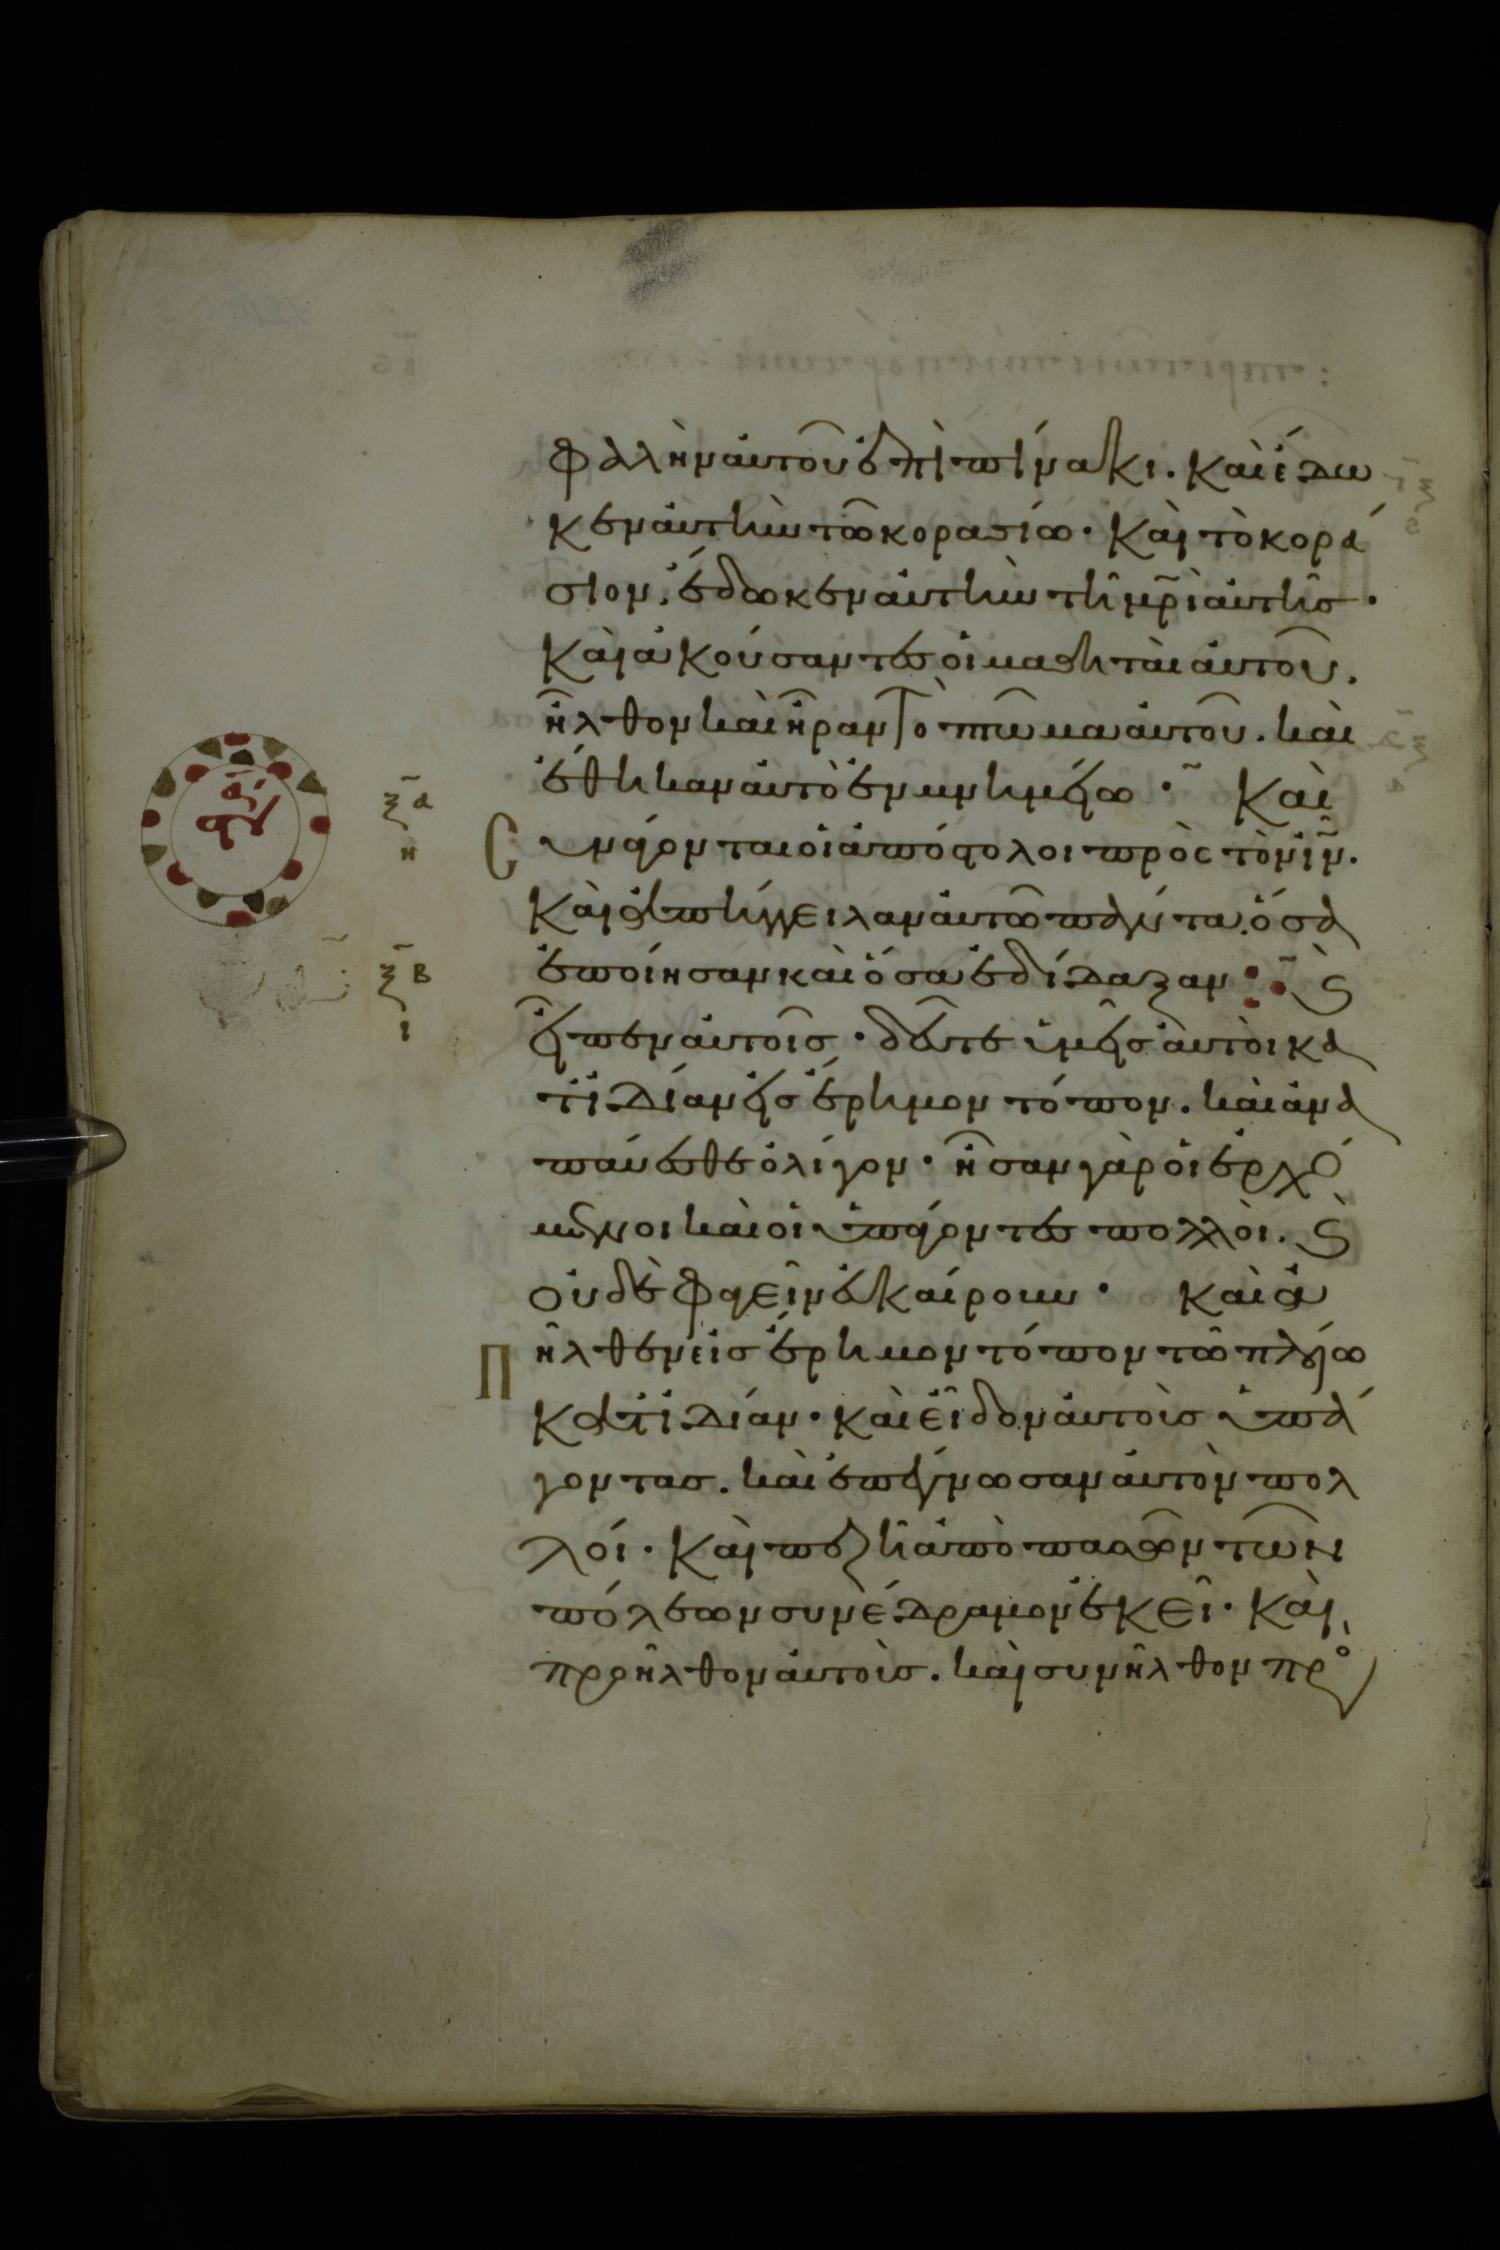 φαλὴν αὐτοῦ ἐπὶ πίνακι. καὶ ἔδω
κεν αὐτὴν τῶ κορασίω· καὶ τὸ κορά
σιον, ἔδωκεν αὐτὴν τῆ μρ̃ὶ αὐτῆς·
καὶ ἀκούσαντες οἱ μαθηταὶ αὐτοῦ.
ἦλθον καὶ ἦραν τὸ πτῶμα αὐτοῦ. καὶ
ἔθηκαν αὐτὸ ἐν μνημείω· Καὶ
ξ̃α
η
Συνάγονται οἱ ἀπόστολοι πρὸς τὸν ιν̃.
καὶ ἀπήγγειλαν αὐτῶ πάντα, ὅσα
ξ̃β
ι
ἐποίησαν καὶ ὅσα ἐδίδαξαν: ϗ̀
εἶπεν αὐτοῖς· δεῦτε ὑμεῖς αὐτοὶ κα
τ' ἰδίαν εἰς ἔρημον τόπον. καὶ ἀνα
παύεσθε ὀλίγον· ἦσαν γὰρ οἱ ἐρχό
μενοι καὶ οἱ ὑπάγοντες πολλοὶ. ϗ̀
οὐδὲ φαγεῖν εὐκαίρουν· καὶ ἀ
Πῆλθεν εἰς ἔρημον τόπον τῶ πλοίω
κατ' ἰδίαν· καὶ εἶδον αὐτοὺς ὑπά
γοντας. καὶ ἐπέγνωσαν αὐτὸν πολ
λοί· καὶ πεζῆ ἀπὸ πασῶν τῶν
πόλεων συνέδραμον ἐκεῖ· καὶ
προῆλθον αὐτοὺς. καὶ συνῆλθον πρὸ